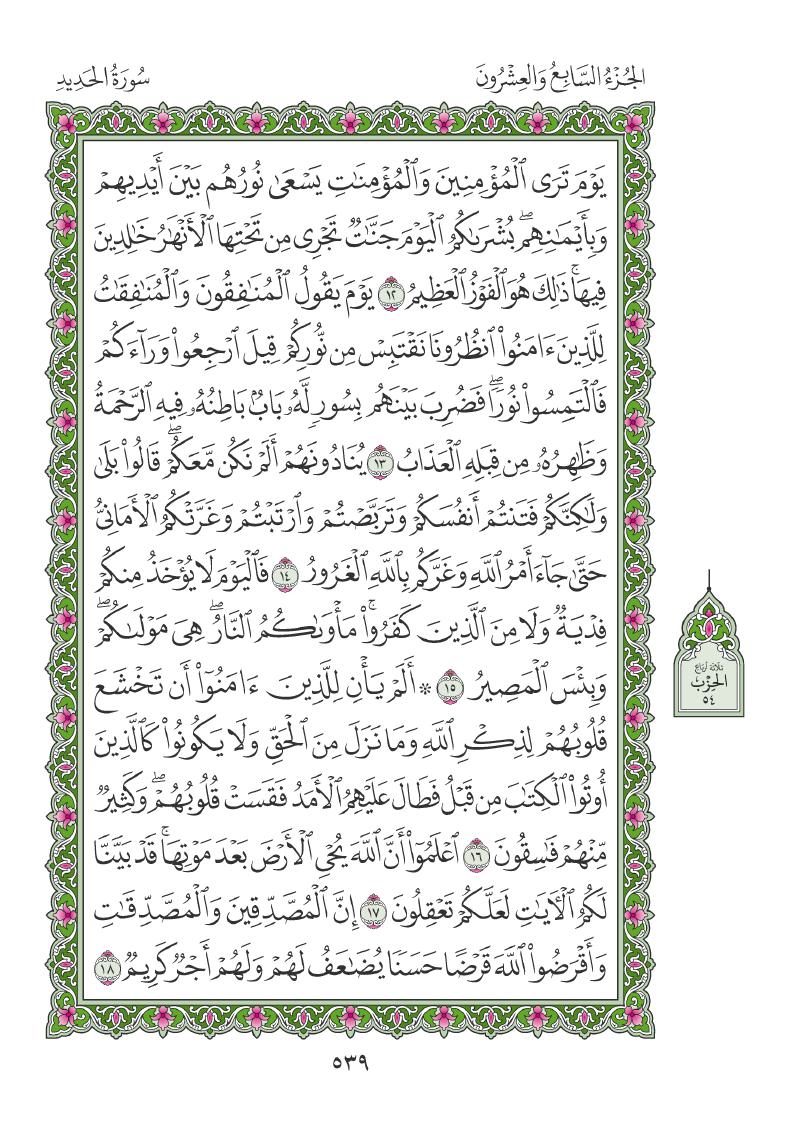 الجُزْءُ السَّابِعُ وَالعِشْرُونَ
سُورَةُ الحَدِيدِ
يَوْمَ تَرَى ٱلْمُؤْمِنِينَ وَٱلْمُؤْمِنَٰتِ يَسْعَىٰ نُورُهُم بَيْنَ أَيْدِيهِمْ
وَبِأَيْمَٰنِهِمۖ بُشْرَىٰكُمُ ٱلْيَوْمَ جَنَّٰتٌ تَجْرِي مِن تَحْتِهَا ٱلْأَنْهَٰرُ خَٰلِدِينَ
فِيهَاۚ ذَٰلِكَ هُوَ ٱلْفَوْزُ ٱلْعَظِيمُ ١٢ يَوْمَ يَقُولُ ٱلْمُنَٰفِقُونَ وَٱلْمُنَٰفِقَٰتُ
لِلَّذِينَ ءَامَنُواْ ٱنظُرُونَا نَقْتَبِسْ مِن نُّورِكُمْ قِيلَ ٱرْجِعُواْ وَرَآءَكُمْ
فَٱلْتَمِسُواْ نُورًاۖ فَضُرِبَ بَيْنَهُم بِسُورٍ لَّهُۥ بَابٌۢ بَاطِنُهُۥ فِيهِ ٱلرَّحْمَةُ
وَظَٰهِرُهُۥ مِن قِبَلِهِ ٱلْعَذَابُ ١٣ يُنَادُونَهُمْ أَلَمْ نَكُن مَّعَكُمْۖ قَالُواْ بَلَىٰ
وَلَٰكِنَّكُمْ فَتَنتُمْ أَنفُسَكُمْ وَتَرَبَّصْتُمْ وَٱرْتَبْتُمْ وَغَرَّتْكُمُ ٱلْأَمَانِيُّ
حَتَّىٰ جَآءَ أَمْرُ ٱللَّهِ وَغَرَّكُم بِٱللَّهِ ٱلْغَرُورُ ١٤ فَٱلْيَوْمَ لَا يُؤْخَذُ مِنكُمْ
فِدْيَةٌ وَلَا مِنَ ٱلَّذِينَ كَفَرُواْۚ مَأْوَىٰكُمُ ٱلنَّارُۖ هِيَ مَوْلَىٰكُمْۖ
وَبِئْسَ ٱلْمَصِيرُ ١٥ ۞ أَلَمْ يَأْنِ لِلَّذِينَ ءَامَنُوٓاْ أَن تَخْشَعَ
قُلُوبُهُمْ لِذِكْرِ ٱللَّهِ وَمَا نَزَلَ مِنَ ٱلْحَقِّ وَلَا يَكُونُواْ كَٱلَّذِينَ
أُوتُواْ ٱلْكِتَٰبَ مِن قَبْلُ فَطَالَ عَلَيْهِمُ ٱلْأَمَدُ فَقَسَتْ قُلُوبُهُمْۖ وَكَثِيرٌ
مِّنْهُمْ فَٰسِقُونَ ١٦ ٱعْلَمُوٓاْ أَنَّ ٱللَّهَ يُحْيِ ٱلْأَرْضَ بَعْدَ مَوْتِهَاۚ قَدْ بَيَّنَّا
لَكُمُ ٱلْأٓيَٰتِ لَعَلَّكُمْ تَعْقِلُونَ ١٧ إِنَّ ٱلْمُصَّدِّقِينَ وَٱلْمُصَّدِّقَٰتِ
وَأَقْرَضُواْ ٱللَّهَ قَرْضًا حَسَنًا يُضَٰعَفُ لَهُمْ وَلَهُمْ أَجْرٌ كَرِيمٌ ١٨
ثلاثة أرباع
الحِزْب
٥٤
٥٣٩